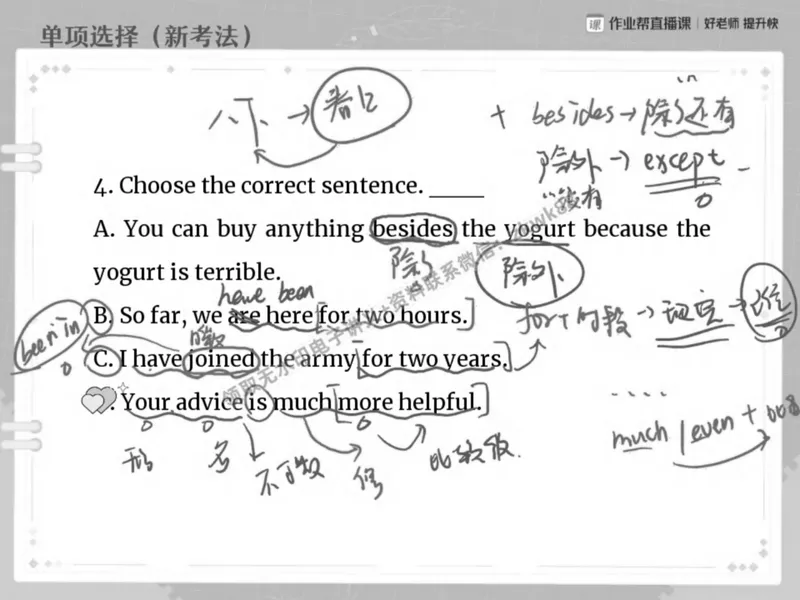 单项选择（新考法）
课 作业帮直播课 | 好老师 提升快
八下 → 着区
+ besides → 除了还有
除外 → except
没有
4. Choose the correct sentence. ____
A. You can buy anything besides the yogurt because the
yogurt is terrible.
除了
除外
have been
B. So far, we are here for two hours.
for+时段 → 现完 → 延
been in
C. I have joined the army for two years.
. Your advice is much more helpful.
much / even + 比
形 名 不可数 修 比较级.
领取无水印电子讲义+资料联系微信: